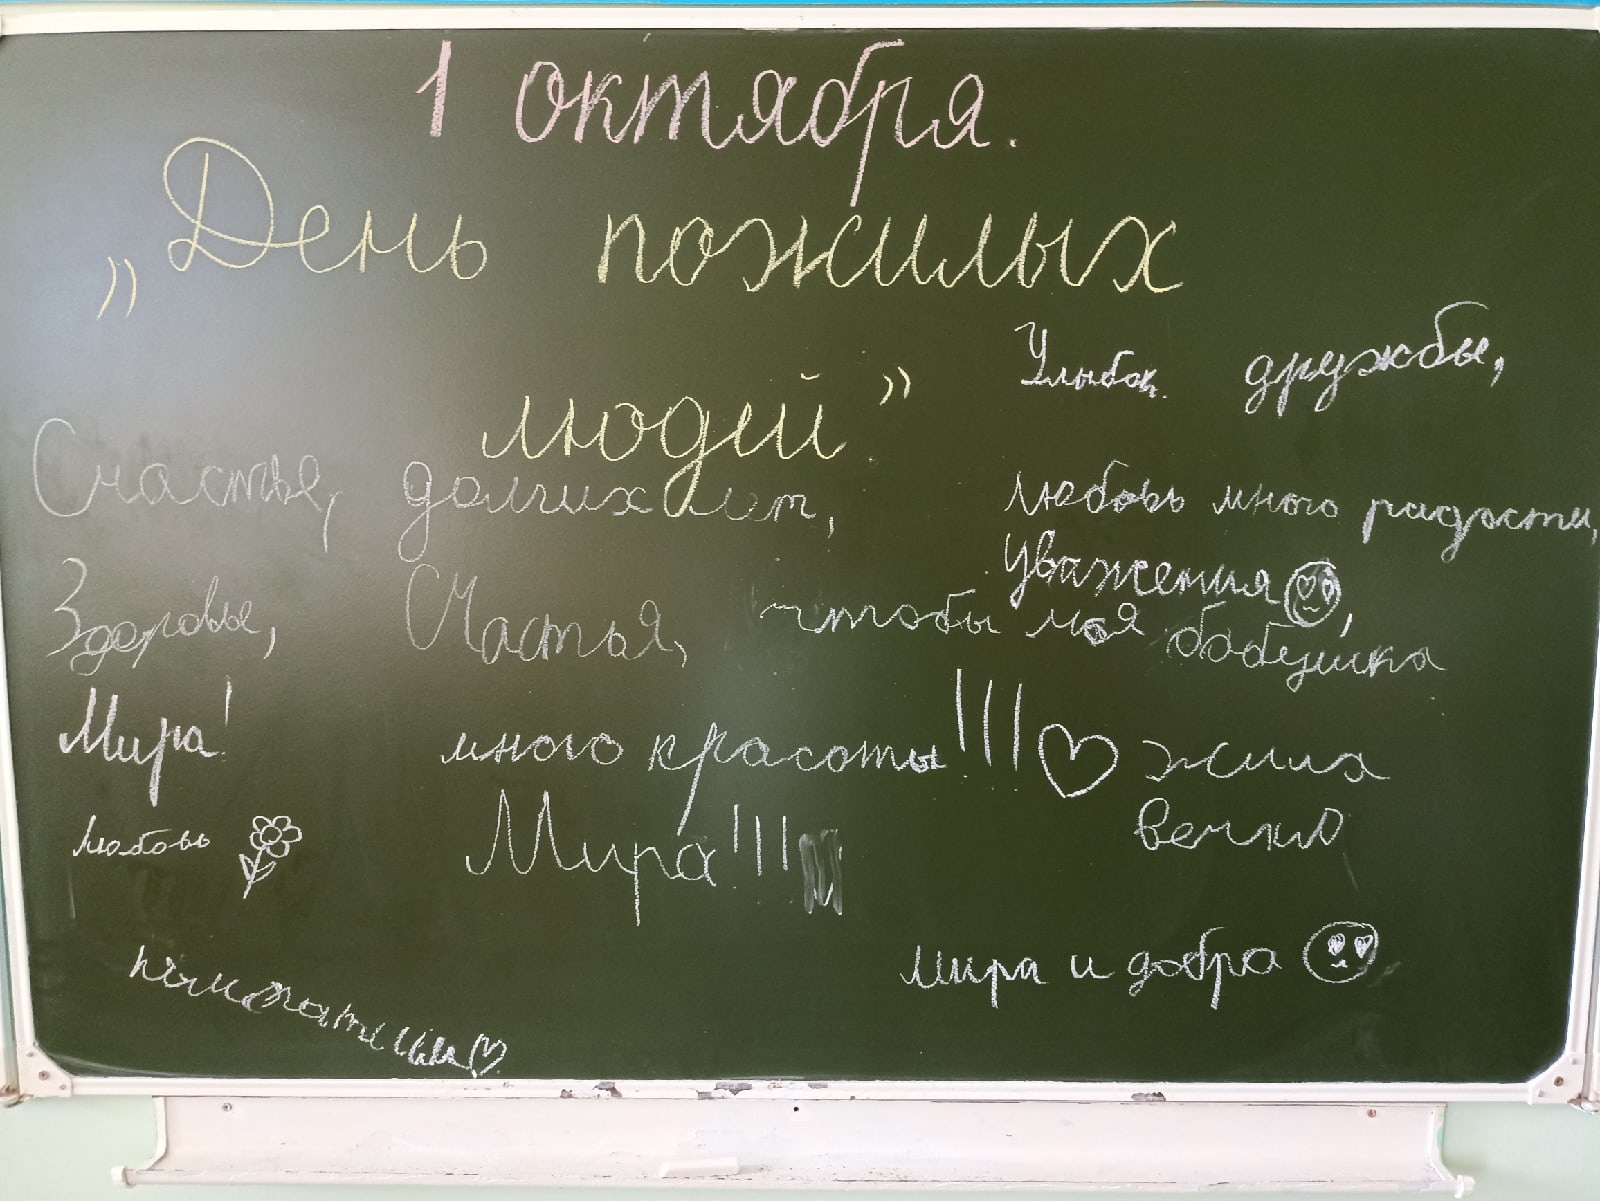 1 октября.
„День пожилых
людей”
Улыбок. дружбы,
Счастье, долгих лет,
любовь много радости,
уважения
Здоровье, Счастья, чтобы моя бабушка
Мира! много красоты!!!! жила
вечно
любовь Мира!!!
мира и добра